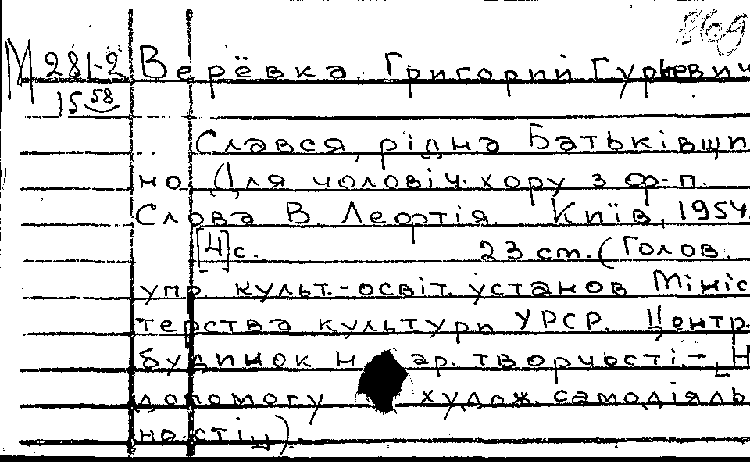 869
М 281-2 Верёвка Григорий Гурьевич
15 58
Слався, рідна Батьківщи
но. Для чоловіч. хору з ф-п.
Слова В. Лефтія. Київ, 1954.
[4]с. 23 cm. (Голов.
упр. культ.-освіт. установ Мініс
терства культури УРСР. Центр.
будинок нар. творчості.- „Н
допомогу худож. самодіяль
ності").